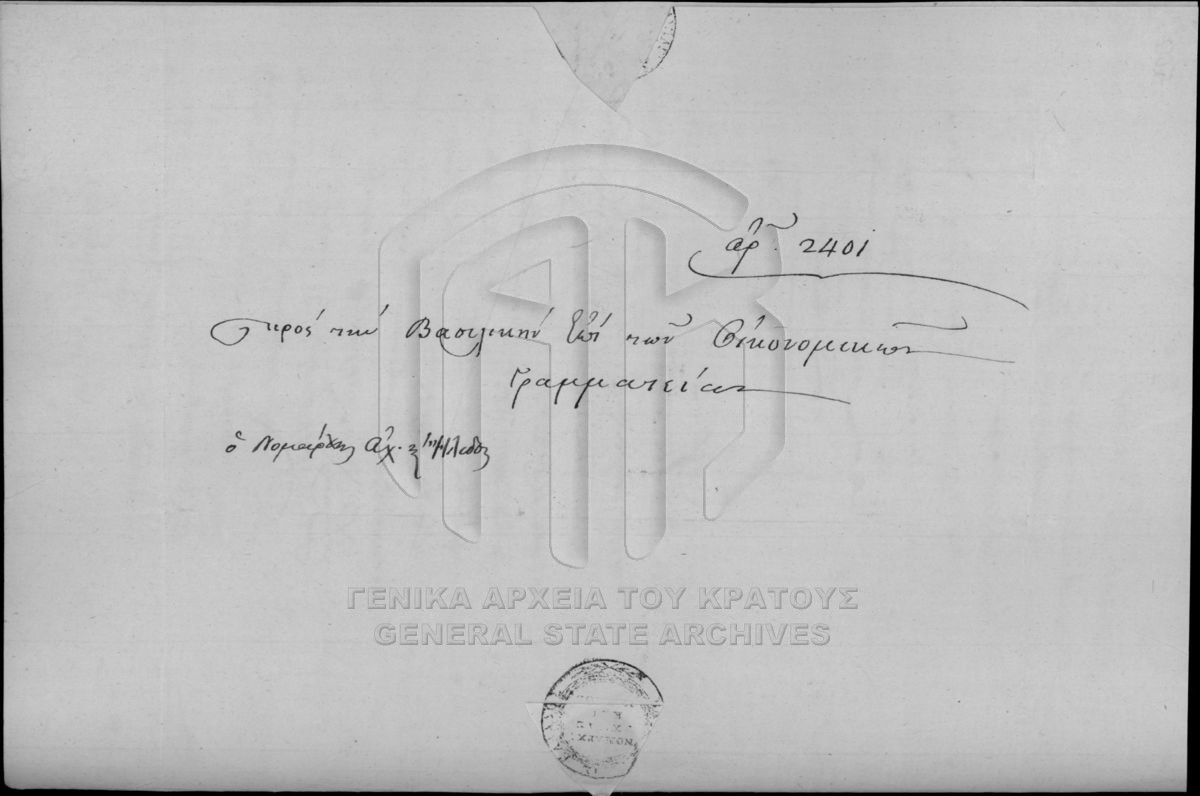 ἀρ. 2401
Πρὸς τὴν Βασιλικὴν Ἐπὶ τῶν Οἰκονομικῶν
Γραμματείαν
ὁ Νομάρχης Ἀχ. κ Ἤλιδος
ΓΕΝΙΚΑ ΑΡΧΕΙΑ ΤΟΥ ΚΡΑΤΟΥΣ
GENERAL STATE ARCHIVES